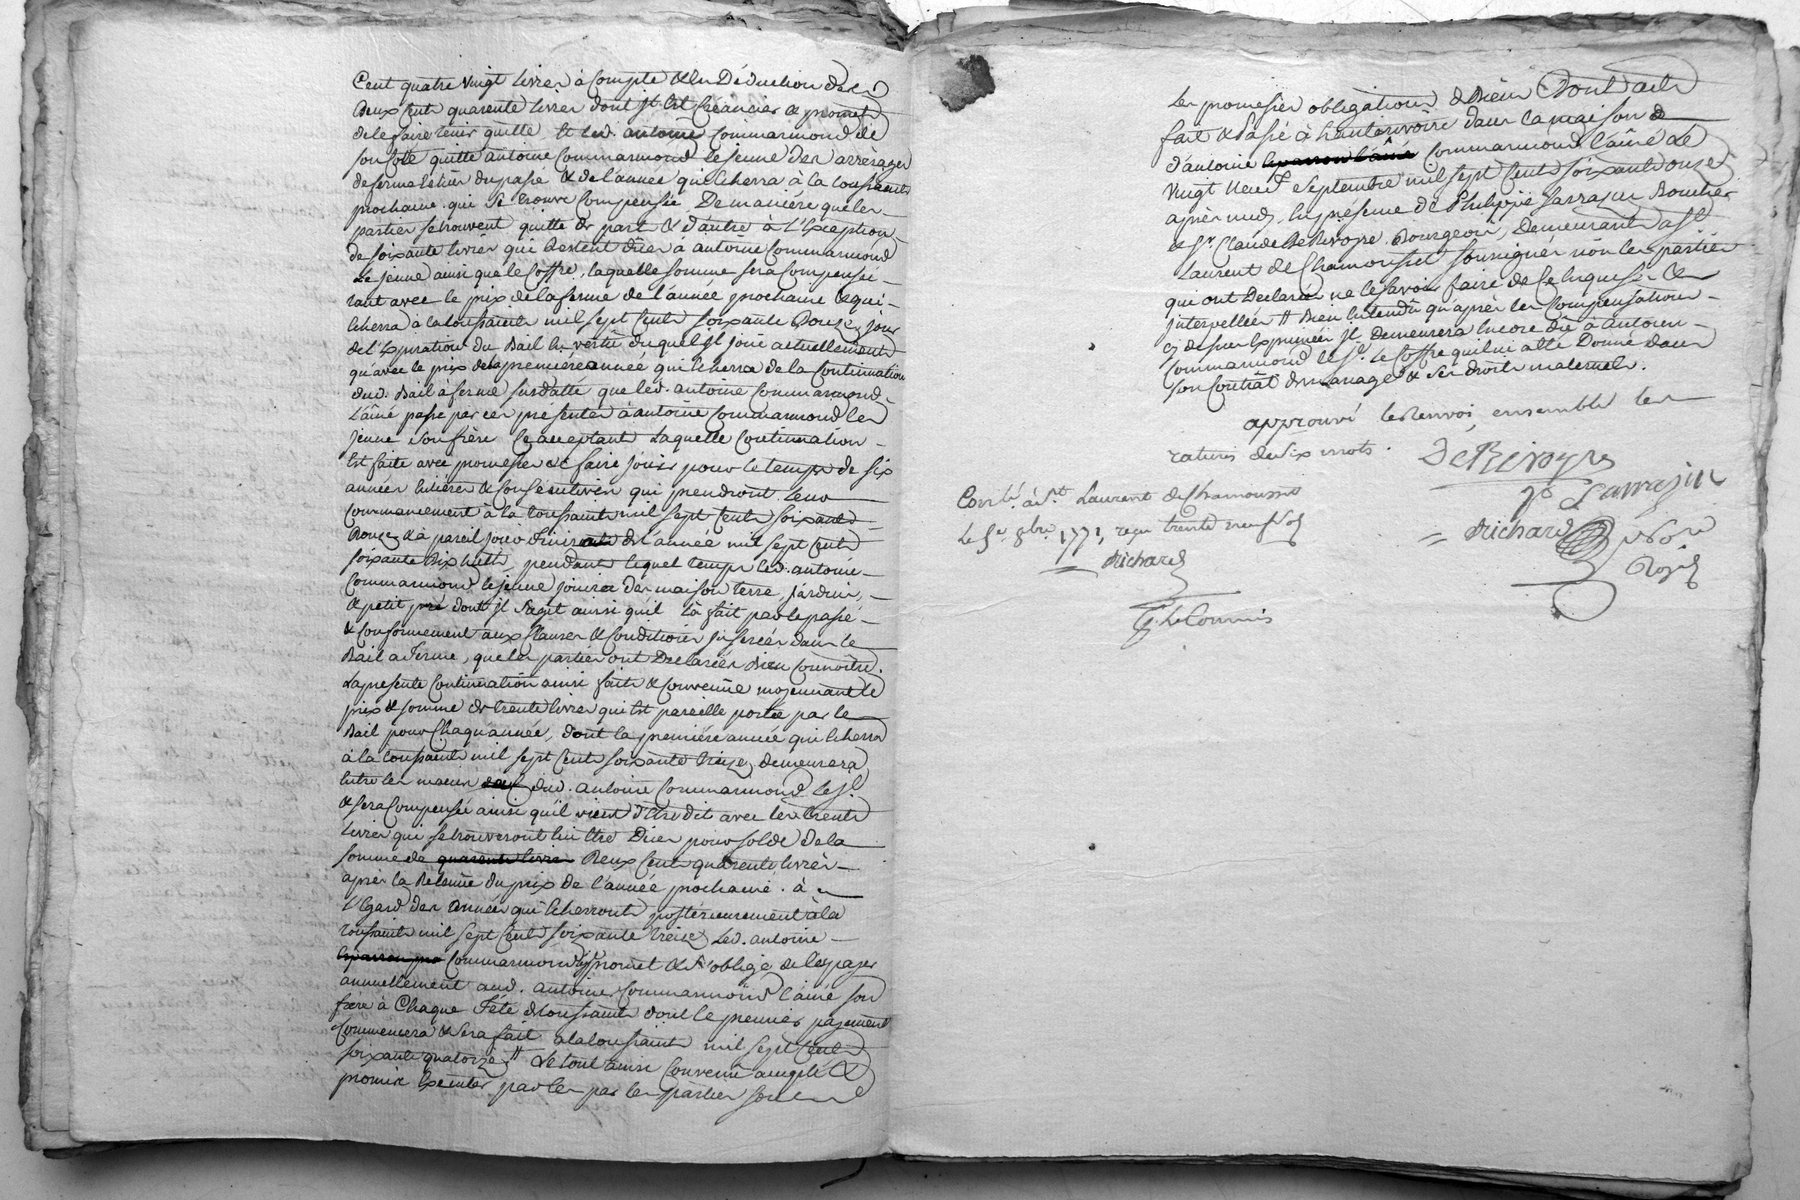 Cent quatre vingt livres à Compte & en Déduction des
Deux Cent quarente livres dont jl Est Créancier & promet
de le faire tenir quitte et led. antoine Commarmond de
son Coté quitte antoine Commarmond le jeune des arrèrages
de ferme du passé & de l'année qui Echerra à la toussaints
prochaine qui Se trouve Compensée, De maniére que les
parties se trouvent quitte de part & d'autre à l'Exception
de soixante livres qui Restent Dües à antoine Commarmond
Le jeune ainsi que le Coffre, laquelle somme sera Compensée
tant avec le prix de la ferme de l'année prochaine & qui
Echerra à la toussaints mil sept Cent soixante Douze, jour
de l'Expiration du Bail En vertu duquel jl jouï actuellement
qu'avec le prix de la première année qui Echerra de la Continuation
dud. Bail à ferme susdatté que led. antoine Commarmond
L'aîné passe par ces présentes à antoine Commarmond le
jeune son frère Ce acceptant Laquelle Continuation
Est faite avec promesse de faire jouir pour le temps de six
années Entières & Consécutives qui prendront leur
Commancement à la toussaints mil sept Cent soixante
Douze & à pareil jour finir de l'année mil sept Cent
soixante Dix huit, pendant lequel temps led. antoine
Commarmond le jeune jouira des maison terre, jardin,
& petit pré dont jl s'agit ainsi qu'il l'a fait par le passé
& Conformement aux Clauses & Conditions jnserées dans le
Bail a ferme, que les parties ont Declarées Bien Connoitre.
La presente Continuation ainsi faite & Convenüe moyennant le
prix & somme de trente livres qui Est pareille portée par le
Bail pour Chaqu'année, dont la premiére année qui Echerra
à la toussaints mil sept Cent soixante treize demeurera
Entre les mains dud. antoine Commarmond le Je.
& sera Compensée ainsi qu'il vient d'Etre dit avec les trente
Livres qui se trouveront lui Etre Dües pour solde de la
somme de quarente livres Deux Cent quarente livres
après la Retenüe du prix de l'année prochaine. à
l'Egard des années qui Echerront postérieurement à la
toussaints mil sept Cent soixante treize, Led. antoine
Commarmond promet & s'oblige de les payer
annuellement aud. antoine Commarmond l'ainé son
frère à Chaque fête de toussaints dont le premier payement
Commencera & sera fait a la toussaints mil sept Cent
soixante quatorze // Le tout ainsi Convenu accepté &
promis Exécuter par les par les parties sous
les promesses obligations & Biens Dont acte
fait & Passé à hauterivoire dans la maison
d'antoine Commarmond l'aîné Le
Vingt neuf septembre mil sept Cent soixante onze
après midy, En présence de Philippe Sarrazin Boucher
& Sr. Claude DeRivoyre Bourgeois, Demeurants a St.
Laurent de Chamousset soussignés non les parties
qui ont Declarées ne le savoir faire de Ce Enquises &
jnterpellées // Bien Entendu qu'après les Compensations
cy dessus Exprimées jl Demeurera Encore dû à antoine
Commarmond le Je. le Coffre qui lui a été Donné dans
son Contrât de mariage & ses droits maternels.
approuvé le Renvoi, ensemble les
ratures de six mots.
DeRivoyre
P. Sarrazin
Richard
Royal
Conlé. à St. Laurent de Chamousset
Le 5e. 8bre. 1771, reçu trente neuf sols
Richard